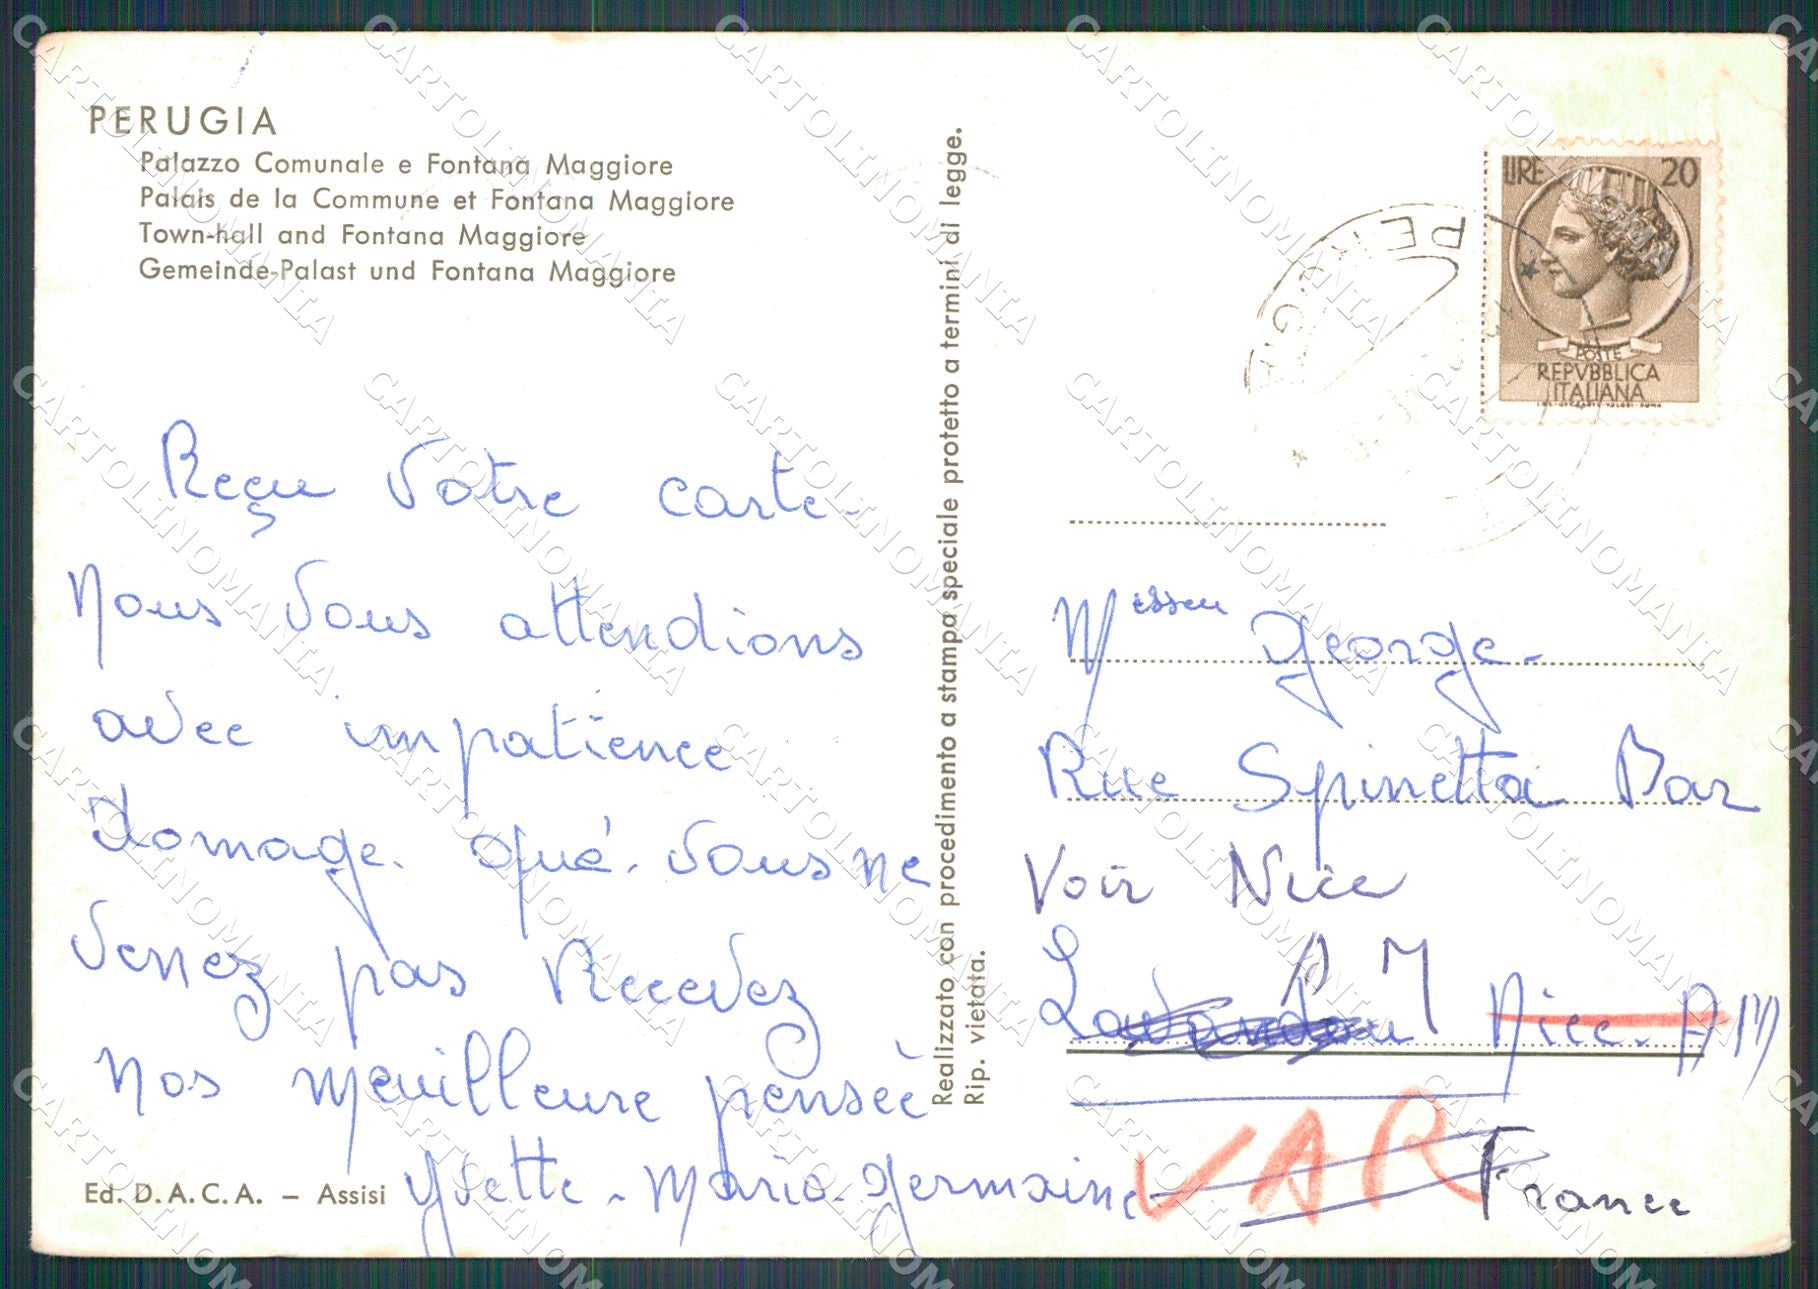 PERUGIA
Palazzo Comunale e Fontana Maggiore
Palais de la Commune et Fontana Maggiore
Town-hall and Fontana Maggiore
Gemeinde-Palast und Fontana Maggiore
Reçu votre carte.
Nous vous attendions
avec impatience
Domage. que. vous ne
venez pas Recevez
nos meuilleure pensée
Yvette - Mario - germaine
Ed. D.A.C.A. – Assisi
Realizzato con procedimento a stampa speciale protetto a termini di legge.
Rip. vietata.
PERUGIA
LIRE 20
POSTE
REPVBBLICA
ITALIANA
Messeu george.
Rue Spinetta Bar
Voir Nice
A M
Nice. AM
VAR
France
CARTOLINOMANIA